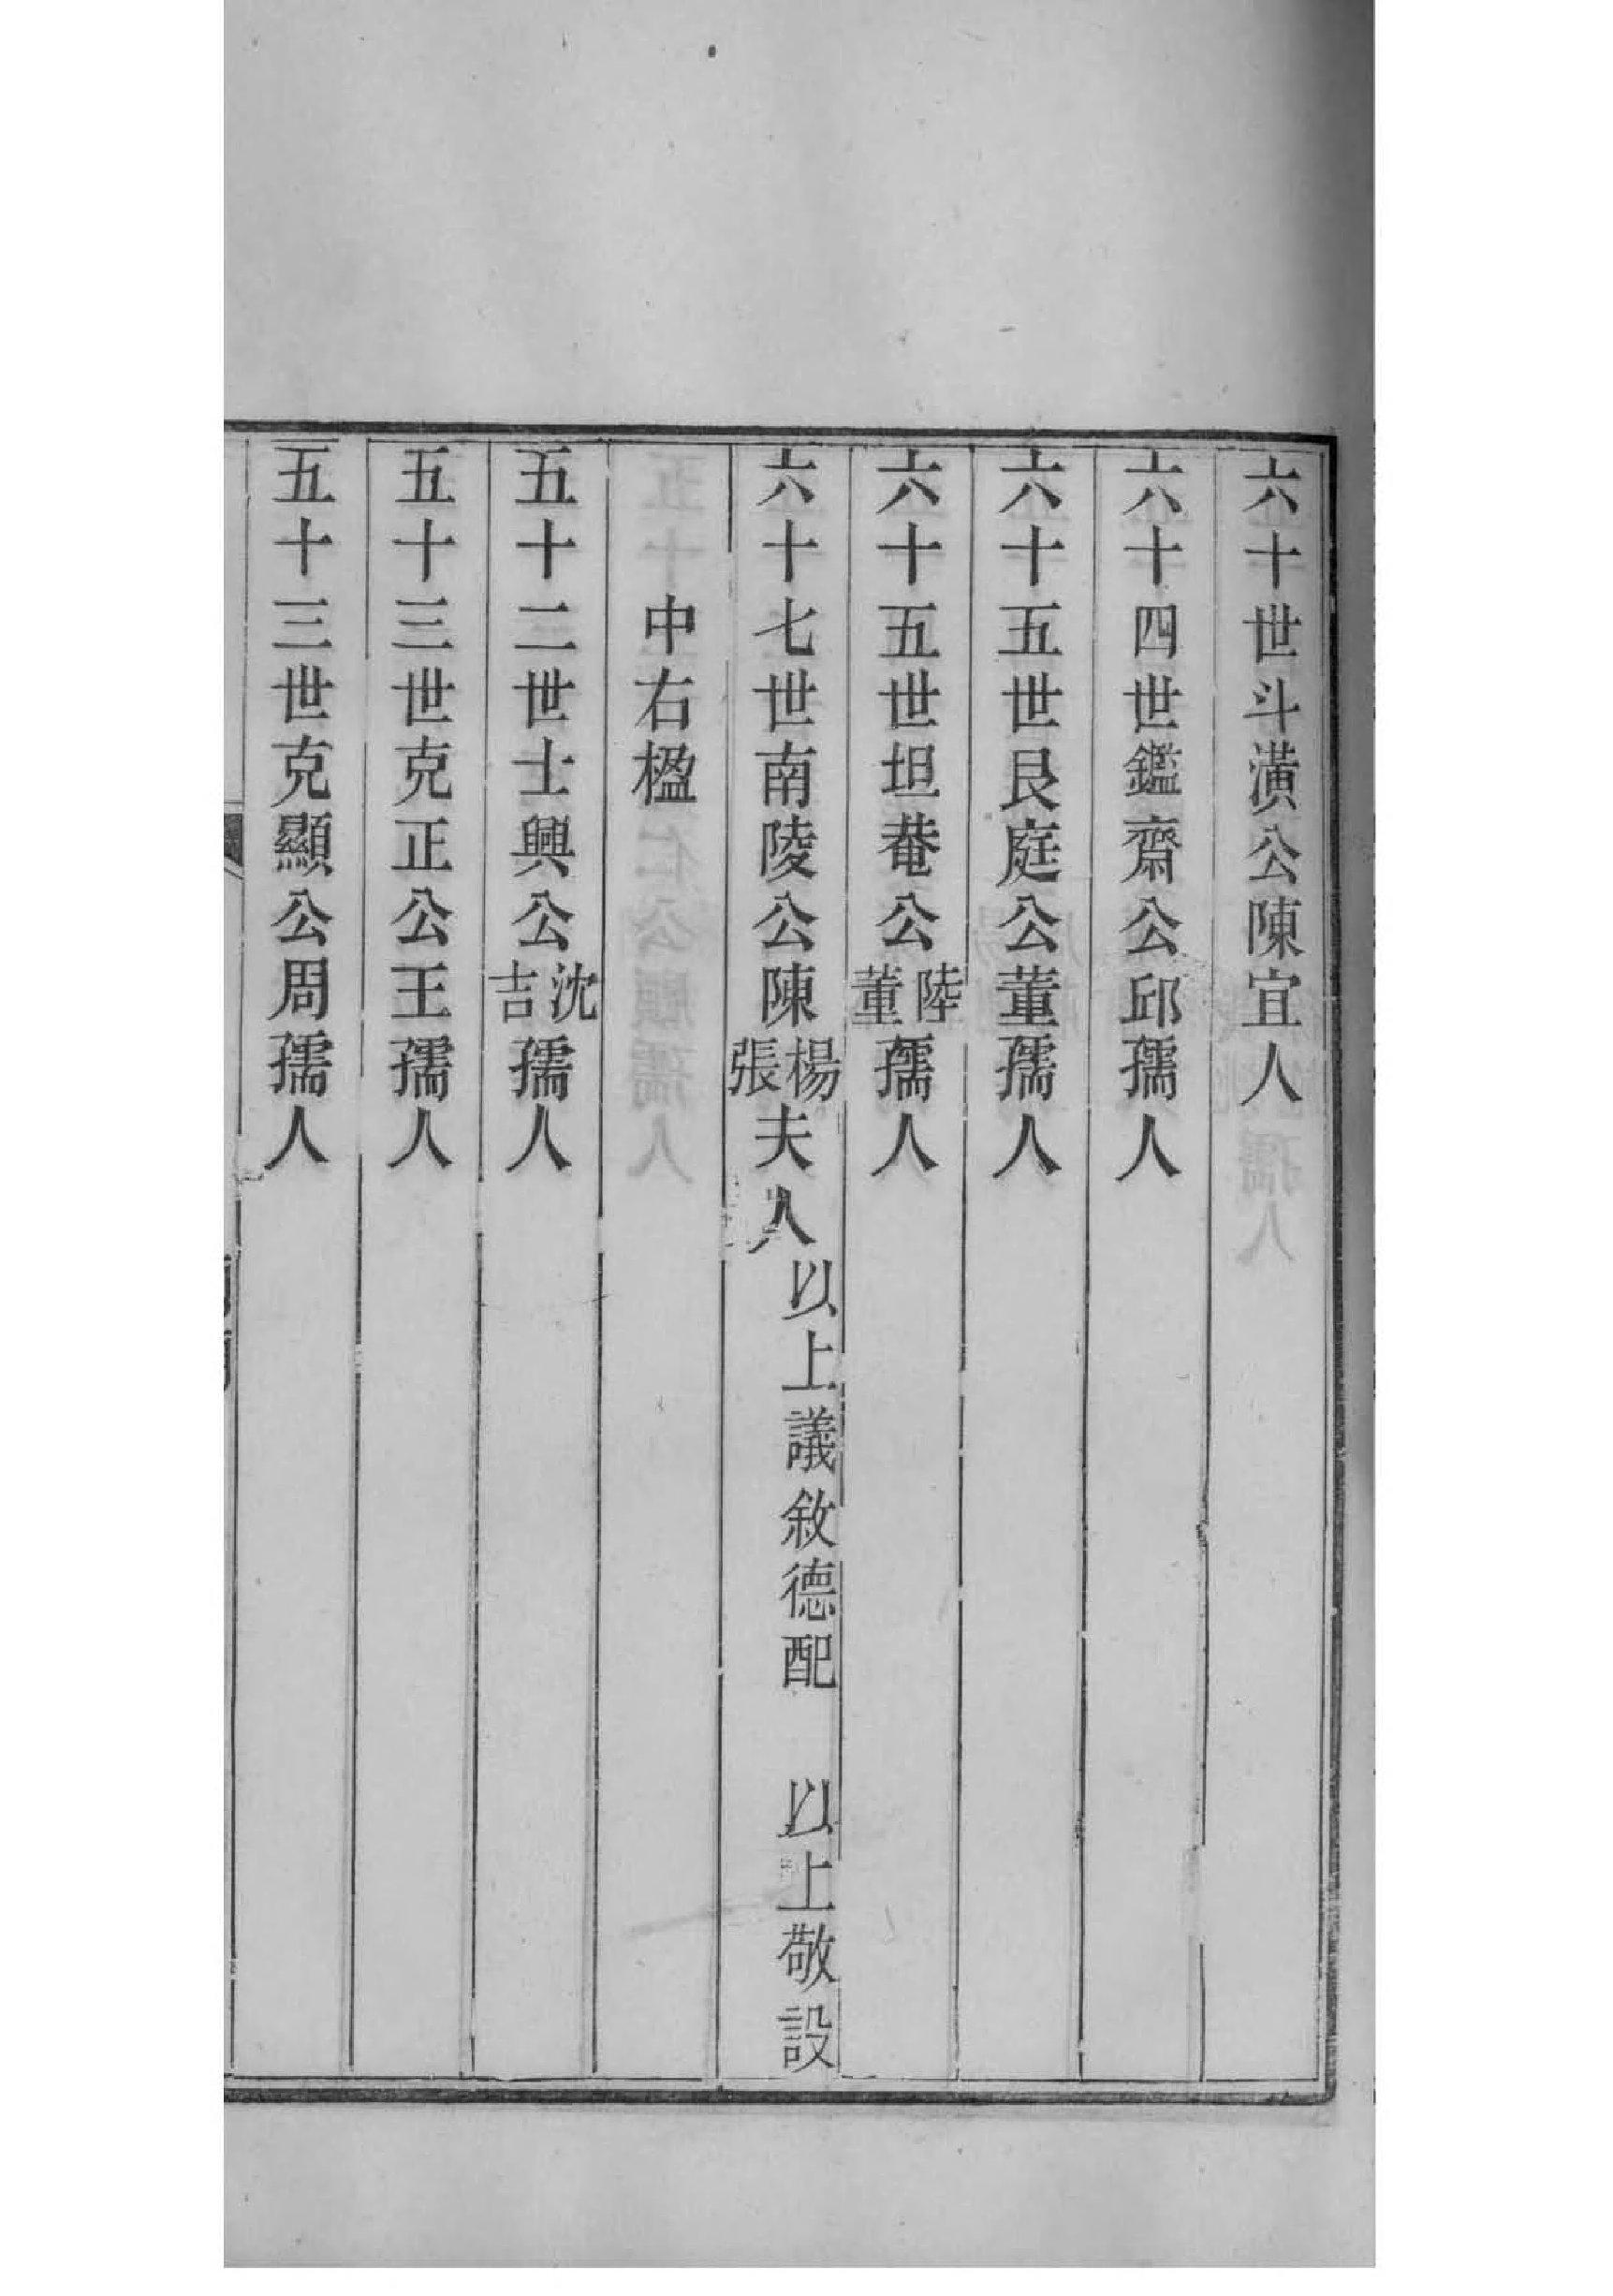 六十世斗潢公陳宜人
六十四世鑑齋公邱孺人
六十五世艮庭公董孺人
六十五世坦菴公陸董孺人
六十七世南陵公陳楊張夫人 以上議敘德配 以上敬設
中右楹
五十二世士興公沈吉孺人
五十三世克正公王孺人
五十三世克顯公周孺人